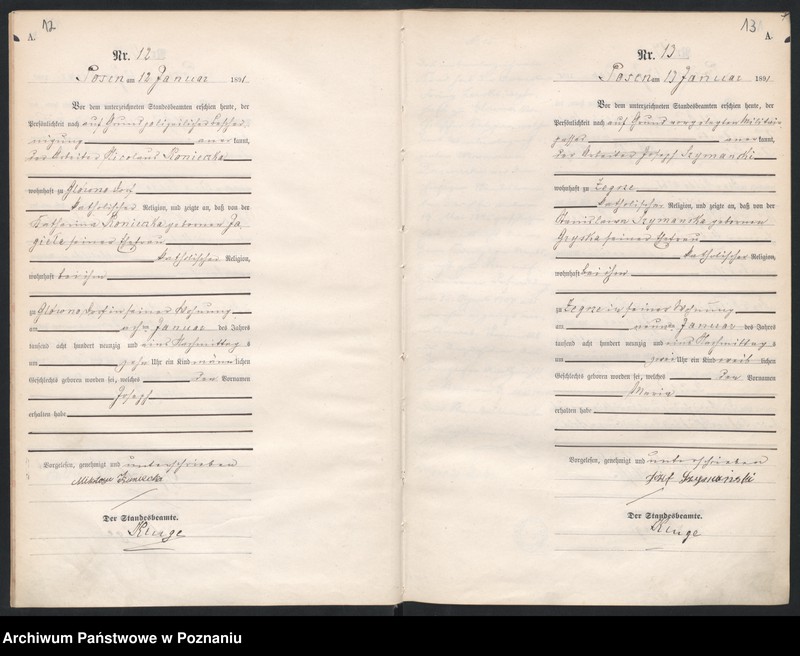 12
A.
Nr. 12
Posen am 12 Januar 1891
Vor dem unterzeichneten Standesbeamten erschien heute, der
Persönlichkeit nach auf Grund polizeilicher Beschei-
nigung anerkannt,
der Arbeiter Nicolaus Konieczka
wohnhaft zu Glówno Dorf
katholischer Religion, und zeigte an, daß von der
Katharina Konieczka geborenen Ja-
giela seiner Ehefrau
katholischer Religion,
wohnhaft bei ihm
zu Glówno Dorf in seiner Wohnung
am acht Januar des Jahres
tausend acht hundert neunzig und eins Nachmittags
um zehn Uhr ein Kind männlichen
Geschlechts geboren worden sei, welches den Vornamen
Joseph
erhalten habe
Vorgelesen, genehmigt und unterschrieben
Der Standesbeamte.
13
A.
Nr. 13
Posen am 13 Januar 1891
Vor dem unterzeichneten Standesbeamten erschien heute, der
Persönlichkeit nach auf Grund vorgelegten Militär-
passes anerkannt,
der Arbeiter Joseph Szymanski
wohnhaft zu Zegrze
katholischer Religion, und zeigte an, daß von der
Stanislawa Szymanska geborenen
seiner Ehefrau
katholischer Religion,
wohnhaft bei ihm
zu Zegrze in seiner Wohnung
am neunten Januar des Jahres
tausend acht hundert neunzig und eins Nachmittags
um zwei Uhr ein Kind weiblichen
Geschlechts geboren worden sei, welches den Vornamen
Maria
erhalten habe
Vorgelesen, genehmigt und unterschrieben
Józef Szymański
Der Standesbeamte.
Archiwum Państwowe w Poznaniu